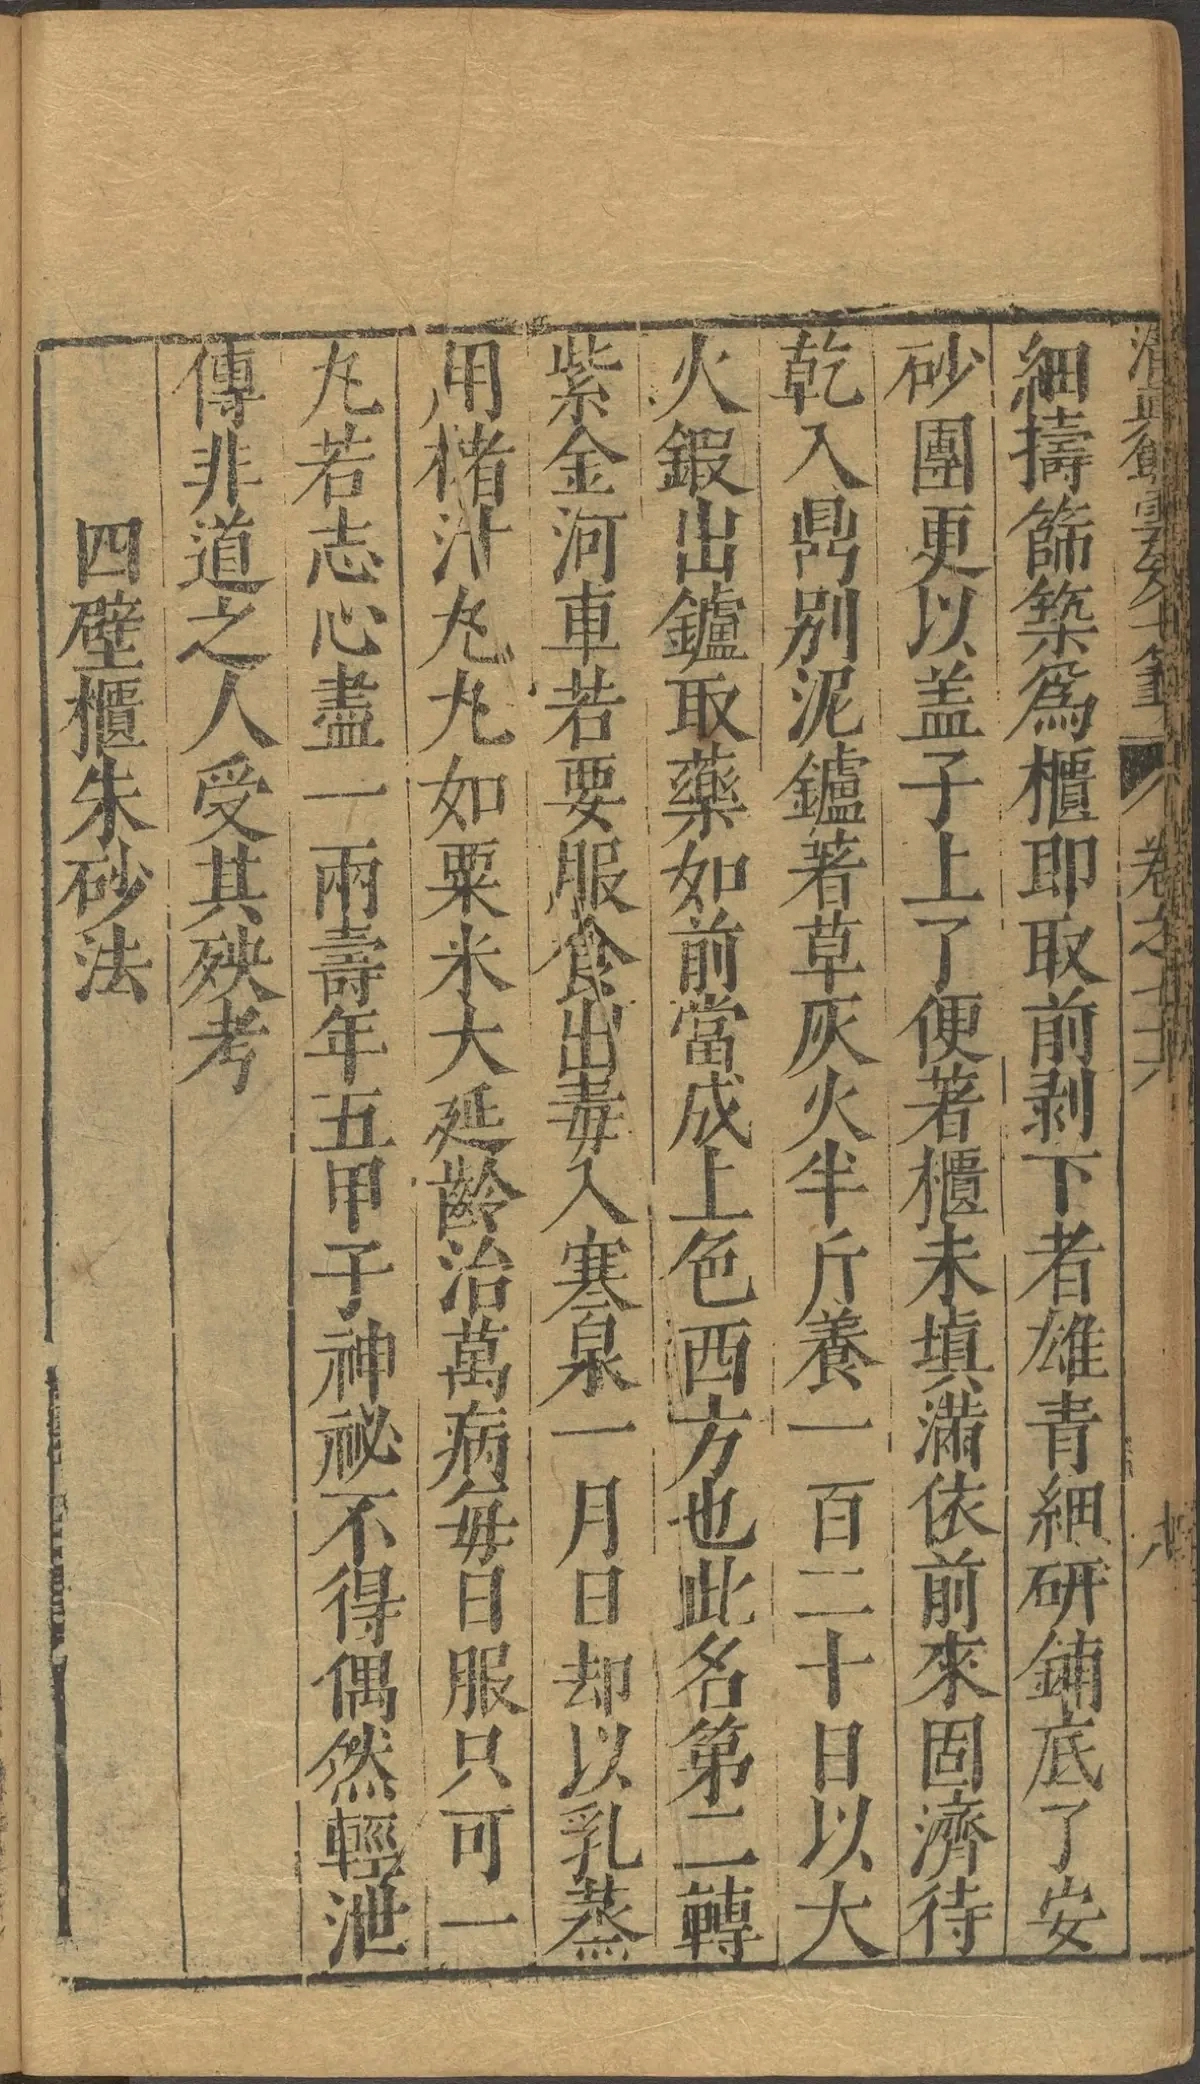 卷之十六
細擣篩築爲櫃即取前剥下者雄青細研鋪底了安
砂團更以盖子上了便著櫃未填滿依前來固濟待
乾入鼎别泥鑪著草灰火半斤養一百二十日以大
火鍜出鑪取藥如前當成上色西方也此名第二轉
紫金河車若要服食出毒入寒泉一月日却以乳蒸
用楮汁丸丸如粟米大延齡治萬病每日服只可一
丸若志心盡一兩壽年五甲子神祕不得偶然輕泄
傳非道之人受其殃考
四壁櫃朱砂法